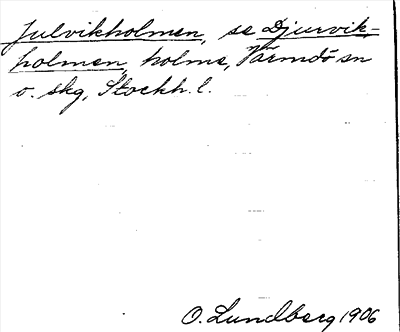 Julvikholmen, se Djurvik-
holmen, holme, Värmdö sn
o. skg, Stockh. l.
O. Lundberg 1906